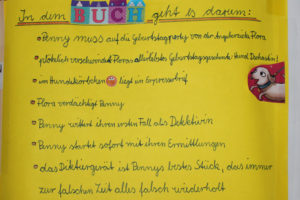 In dem BUCH geht es darum:
Penny muss auf die Geburtstagsparty von der Angeberzicke Flora
plötzlich verschwindet Floras allerliebstes Geburtstagsgeschenk: Hund Dochan!
im Hundekörbchen liegt ein Erpresserbrief
Flora verdächtigt Penny
Penny wittert ihren ersten Fall als Detektivin
Penny startet sofort mit ihren Ermittlungen
das Diktiergerät ist Pennys bestes Stück, das immer
zur falschen Zeit alles falsch wiederholt